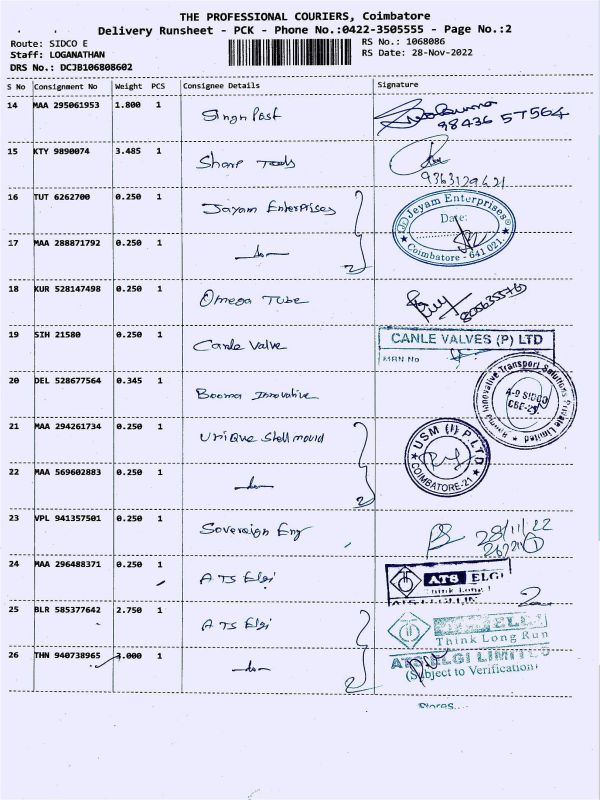 THE PROFESSIONAL COURIERS, Coimbatore
Delivery Runsheet - PCK - Phone No.:0422-3505555 - Page No.:2
Route: SIDCO E
RS No.: 1068086
Staff: LOGANATHAN
RS Date: 28-Nov-2022
DRS No.: DCJB106808602
S No Consignment No Weight PCS Consignee Details Signature
14 MAA 295061953 1.800 1 Singn Post
98436 57564
15 KTY 9890074 3.485 1 Sharp Tools
9363129621
16 TUT 6262700 0.250 1 Jayam Enterprises
Jeyam Enterprises
Date:
Coimbatore - 641 021.
17 MAA 288871792 0.250 1 -do- 2
18 KUR 528147498 0.250 1 Omega Tube
19 SIH 21580 0.250 1 Canle Valve
CANLE VALVES (P) LTD
MRN No
20 DEL 528677564 0.345 1 Booma Innovative
Innovative Transport Solutions Private Limited
A-9 SIDCO
CBE-21
21 MAA 294261734 0.250 1 Unique Shell mould
USM (I) P LTD
COIMBATORE-21
22 MAA 569602883 0.250 1 -do- 2
23 VPL 941357501 0.250 1 Sovereign Eng
28/11/22
24 MAA 296488371 0.250 1 ATS Elgi
ATS ELGI
Think Long
25 BLR 585377642 2.750 1 ATS Elgi
ELGI
Think Long Run
26 THN 940738965 3.000 1 -do- 2
ATS ELGI LIMITED
(Subject to Verification)
Stores....